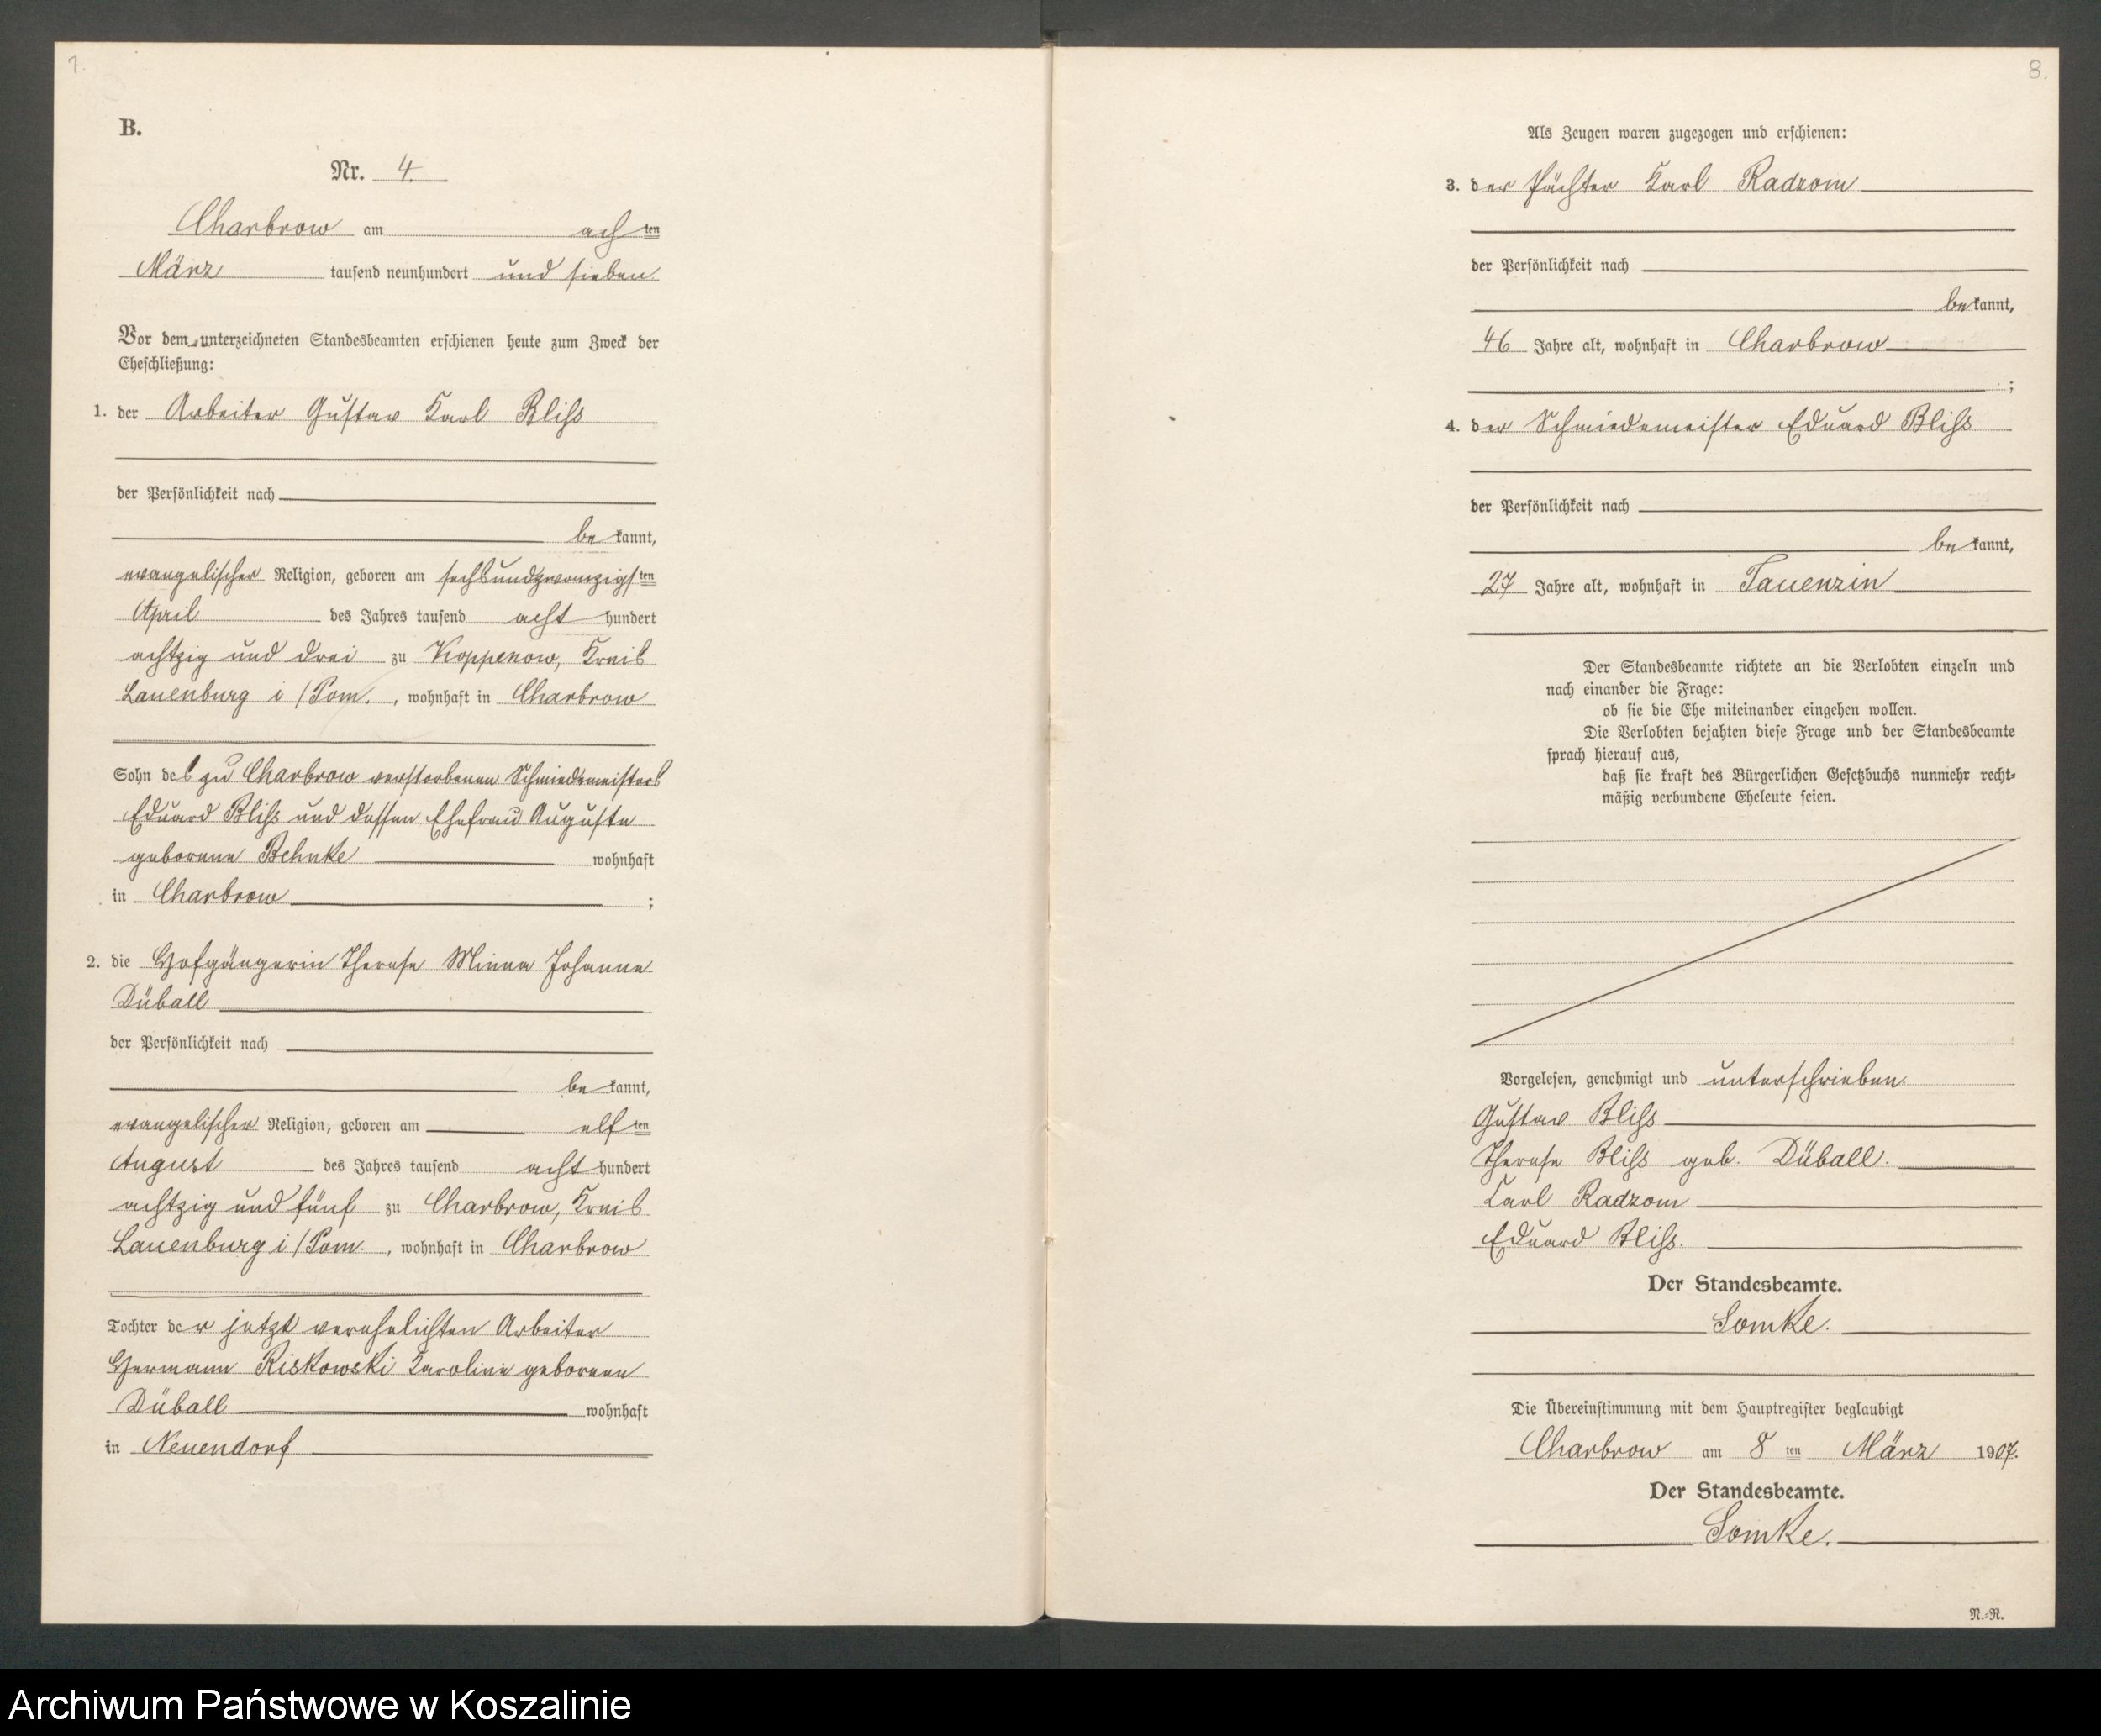 7.
B.
Nr. 4.
Charbrow am achten
März tausend neunhundert und sieben.
Vor dem unterzeichneten Standesbeamten erschienen heute zum Zweck der
Eheschließung:
1. der Arbeiter Gustav Karl Bliß
der Persönlichkeit nach
bekannt,
evangelischer Religion, geboren am sechsundzwanzigsten
April des Jahres tausend acht hundert
achtzig und drei zu Koppenow, Kreis
Lauenburg i/Pom., wohnhaft in Charbrow
Sohn des zu Charbrow verstorbenen Schmiedemeisters
Eduard Bliß und dessen Ehefrau Auguste
geborene Behnke wohnhaft
in Charbrow ;
2. die Hofgängerin Therese Minna Johanne
Düball
der Persönlichkeit nach
bekannt,
evangelischer Religion, geboren am elften
August des Jahres tausend acht hundert
achtzig und fünf zu Charbrow, Kreis
Lauenburg i/Pom., wohnhaft in Charbrow
Tochter der jetzt verehelichten Arbeiter
Hermann Riskowski Karoline geborenen
Düball wohnhaft
in Neuendorf
8.
Als Zeugen waren zugezogen und erschienen:
3. der Pächter Karl Radzom
der Persönlichkeit nach
bekannt,
46 Jahre alt, wohnhaft in Charbrow
;
4. der Schmiedemeister Eduard Bliß
der Persönlichkeit nach
bekannt,
27 Jahre alt, wohnhaft in Tauenzin
Der Standesbeamte richtete an die Verlobten einzeln und
nach einander die Frage:
ob sie die Ehe miteinander eingehen wollen.
Die Verlobten bejahten diese Frage und der Standesbeamte
sprach hierauf aus,
daß sie kraft des Bürgerlichen Gesetzbuchs nunmehr recht-
mäßig verbundene Eheleute seien.
Vorgelesen, genehmigt und unterschrieben.
Gustav Bliß
Therese Bliß geb. Düball.
Karl Radzom
Eduard Bliß.
Der Standesbeamte.
Somke.
Die Übereinstimmung mit dem Hauptregister beglaubigt
Charbrow am 8ten März 1907.
Der Standesbeamte.
Somke.
N.-R.
Archiwum Państwowe w Koszalinie